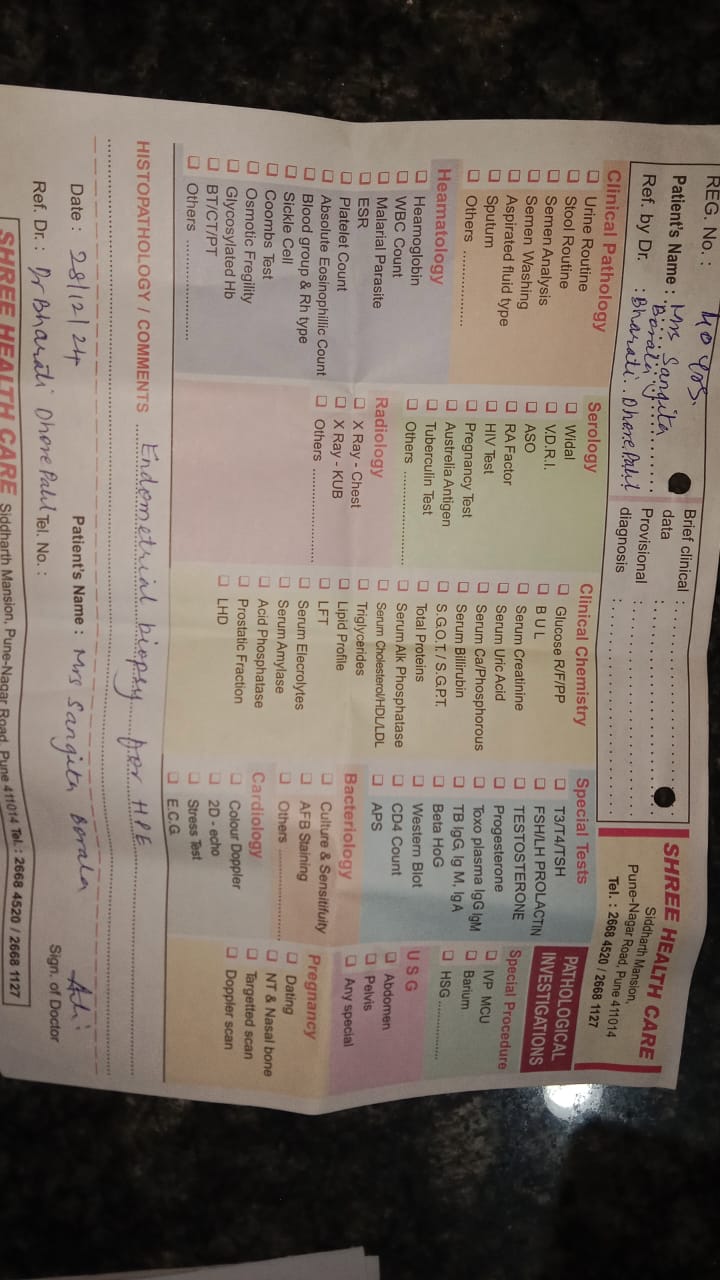 REG. No. : 40 yrs.
Patient's Name : Mrs Sangita
Borala
Ref. by Dr. : Bharati Dhore Patil
Brief clinical :
data
Provisional :
diagnosis
SHREE HEALTH CARE
Siddharth Mansion,
Pune-Nagar Road, Pune 411014
Tel. : 2668 4520 / 2668 1127
PATHOLOGICAL
INVESTIGATIONS
Clinical Pathology
Urine Routine
Stool Routine
Semen Analysis
Semen Washing
Aspirated fluid type
Sputum
Others ...................
Heamatology
Heamoglobin
WBC Count
Malarial Parasite
ESR
Platelet Count
Absolute Eosinophillic Count
Blood group & Rh type
Sickle Cell
Coombs Test
Osmotic Fregility
Glycosylated Hb
BT/CT/PT
Others .........................
Serology
Widal
V.D.R.I.
ASO
RA Factor
HIV Test
Pregnancy Test
Austrelia Antigen
Tuberculin Test
Others .......................
Radiology
X Ray - Chest
X Ray - KUB
Others .......................
Clinical Chemistry
Glucose R/F/PP
B U L
Serum Creatinine
Serum Uric Acid
Serum Ca/Phosphorous
Serum Billirubin
S.G.O.T./ S.G.P.T.
Total Proteins
Serum Alk Phosphatase
Serum Cholesterol/HDL/LDL
Triglycerides
Lipid Profile
LFT
Serum Elecrolytes
Serum Amylase
Acid Phosphatase
Prostatic Fraction
LHD
Special Tests
T3/T4/TSH
FSH/LH PROLACTIN
TESTOSTERONE
Progesterone
Toxo plasma IgG IgM
TB IgG, Ig M, Ig A
Beta HoG
Western Blot
CD4 Count
APS
Bacteriology
Culture & Sensitifuity
AFB Staining
Others .......................
Cardiology
Colour Doppler
2D - echo
Stress Test
E.C.G
Special Procedure
IVP MCU
Barium
HSG ...............
U S G
Abdomen
Pelvis
Any special
Pregnancy
Dating
NT & Nasal bone
Targetted scan
Doppler scan
HISTOPATHOLOGY / COMMENTS Endometrial biopsy for HPE
Date : 28/12/24 Patient's Name : Mrs Sangita Borala
Ref. Dr. : Dr Bharati Dhore Patil Tel. No. : Sign. of Doctor
SHREE HEALTH CARE Siddharth Mansion, Pune-Nagar Road, Pune 411014 Tel.: 2668 4520 / 2668 1127